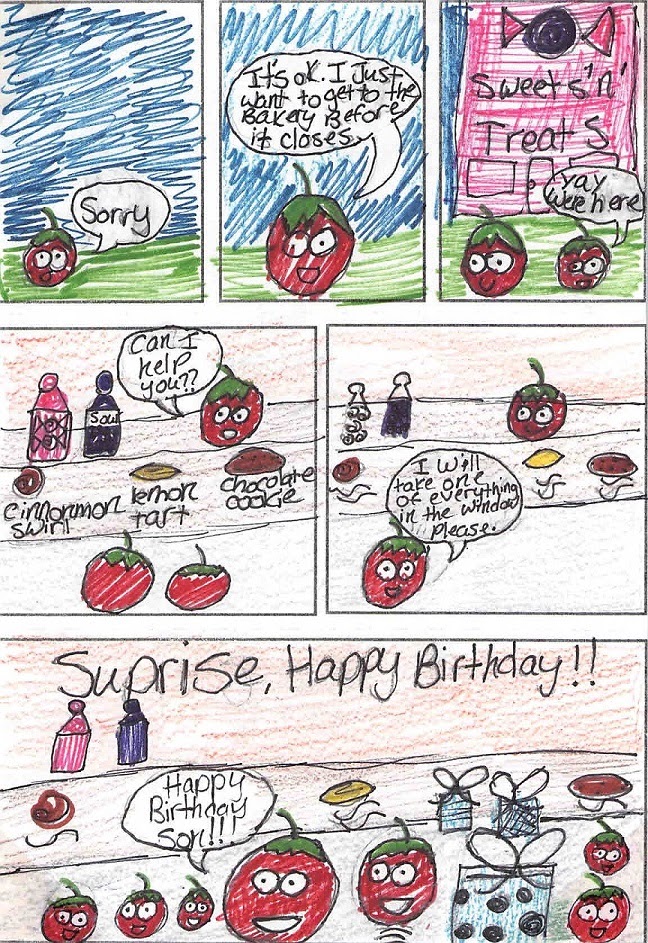 Sorry
It's ok. I Just
want to get to the
Bakery Before
it closes.
Sweets 'n'
Treats
Yay
were here
Can I
help
you??
Sour
cinnonmon
swirl
lemon
tart
chocolate
cookie
I will
take one
of everything
in the window
please.
Suprise, Happy Birthday!!
Happy
Birthday
son!!!